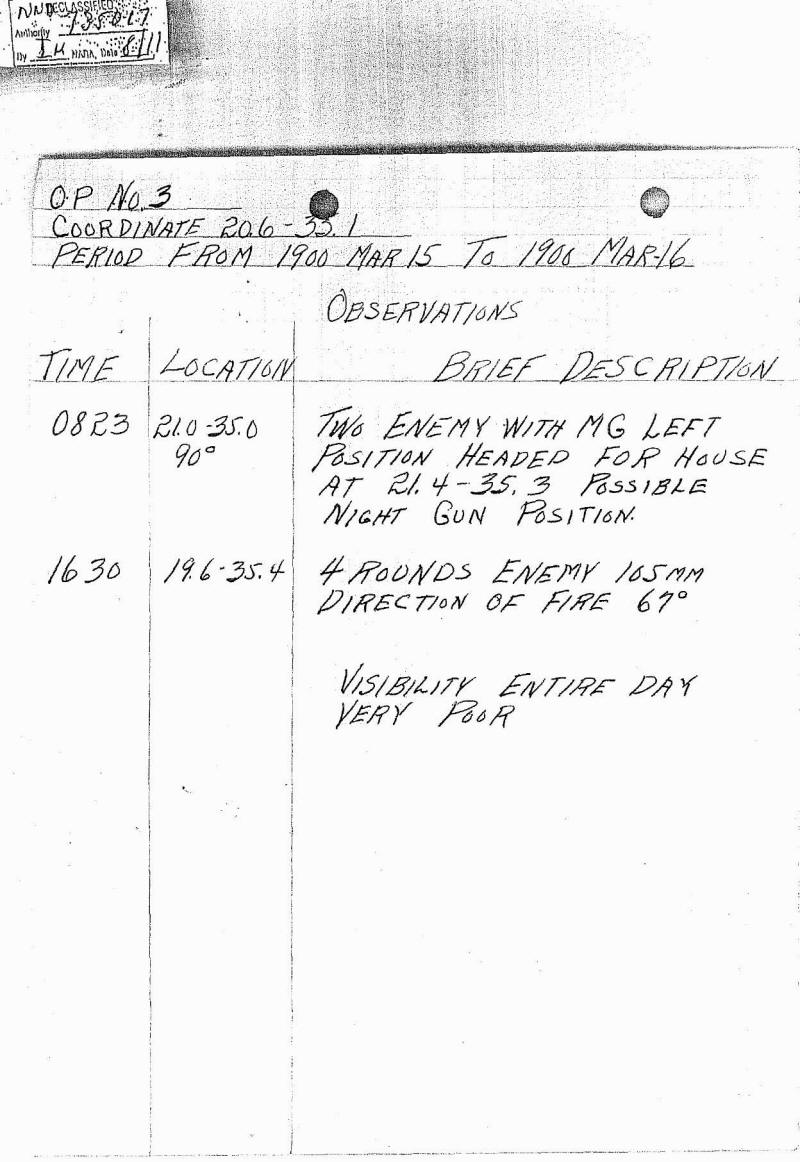 DECLASSIFIED
Authority NND 735017
By IH NARA, Date 8/11
O.P No. 3
COORDINATE 20.6-35.1
PERIOD FROM 1900 MAR 15 TO 1900 MAR-16
OBSERVATIONS
TIME LOCATION BRIEF DESCRIPTION
0823 21.0-35.0 TWO ENEMY WITH MG LEFT
90° POSITION HEADED FOR HOUSE
AT 21.4-35.3 POSSIBLE
NIGHT GUN POSITION.
1630 19.6-35.4 4 ROUNDS ENEMY 105MM
DIRECTION OF FIRE 67°
VISIBILITY ENTIRE DAY
VERY POOR